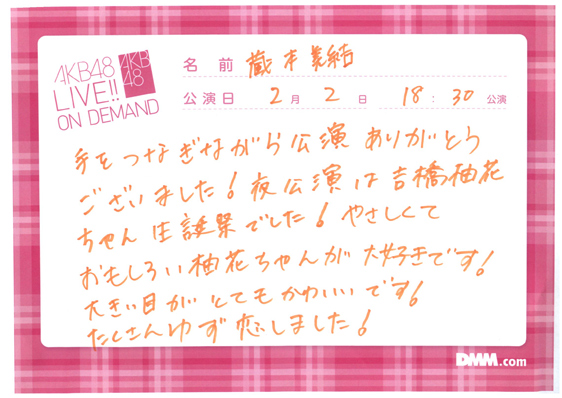 AKB48
LIVE!!
ON DEMAND
AKB
48
名前 蔵本美結
公演日 2月2日 18:30公演
手をつなぎながら公演 ありがとう
ございました!夜公演は吉橋柚花
ちゃん生誕祭でした!やさしくて
おもしろい柚花ちゃんが大好きです!
大きい目がとてもかわいいです!
たくさんゆず恋しました!
DMM.com